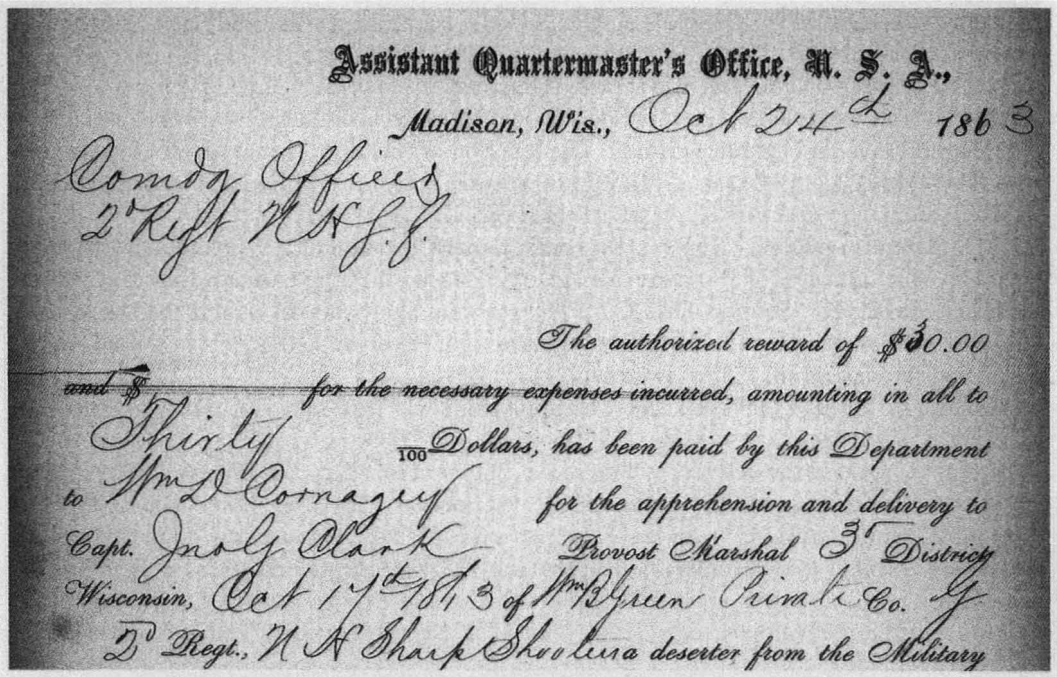 Assistant Quartermaster's Office, U. S. A.,
Madison, Wis., Oct 24th 1863
Comdg Officer
2d Regt N H S. S.
The authorized reward of $30.00
and $ for the necessary expenses incurred, amounting in all to
Thirty /100 Dollars, has been paid by this Department
to Wm D Cornagey for the apprehension and delivery to
Capt. Jno G Clark Provost Marshal 3d District
Wisconsin, Oct 17th 1863 of Wm B Green Private Co. G
2d Regt., N H Sharp Shooters a deserter from the Military